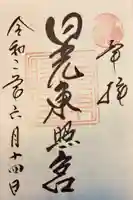 奉拝
日光東照宮
令和二年六月十四日